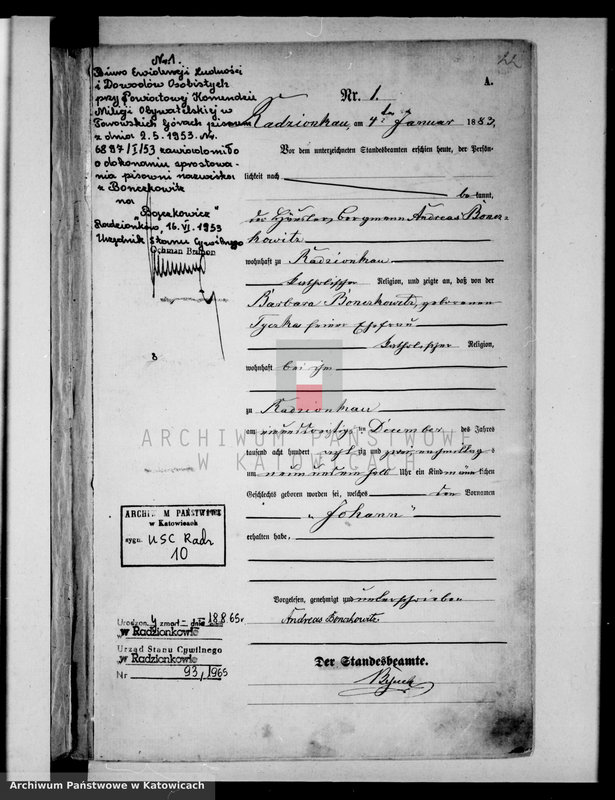 22
A.
Nr. 1.
Nr. 1.
Biuro Ewidencji Ludności
i Dowodów Osobistych
przy Powiatowej Komendzie
Milicji Obywatelskiej w
Tarnowskich Górach pismem
z dnia 2.5.1953. Nr.
6897/I/53 zawiadomiło
o dokonaniu sprostowa-
nia pisowni nazwiska
z Bonczkowitz
na
"Bączkowicz"
Radzionków, 16.VI.1953
Urzędnik Stanu Cywilnego
Radzionkau, am 4ten Januar 1883,
Vor dem unterzeichneten Standesbeamten erschien heute, der Persön-
lichkeit nach
be kannt,
der Häusler, Bergmann Andreas Bonez-
kowitz
wohnhaft zu Radzionkau
katholischer Religion, und zeigte an, daß von der
Barbara Bonezkowitz, geborenen
Tyczka seiner Ehefrau
katholischer Religion,
wohnhaft bei ihm
zu Radzionkau
am ten December des Jahres
tausend acht hundert acht zig und zwei, nachmittags
um neun Uhr ein Kind männ lichen
Geschlechts geboren worden sei, welches den Vornamen
"Johann"
erhalten habe,
Vorgelesen, genehmigt und unterschrieben
Andreas Bonczkowitz
Der Standesbeamte.
8
ARCHIWUM PAŃSTWOWE
w Katowicach
sygn. USC Radz
10
Urodzony zmarł dnia 18.8.65r
w Radzionkowie
Urząd Stanu Cywilnego
w Radzionkowie
Nr 93/1965
ARCHIWUM PAŃSTWOWE
W KATOWICACH
Archiwum Państwowe w Katowicach